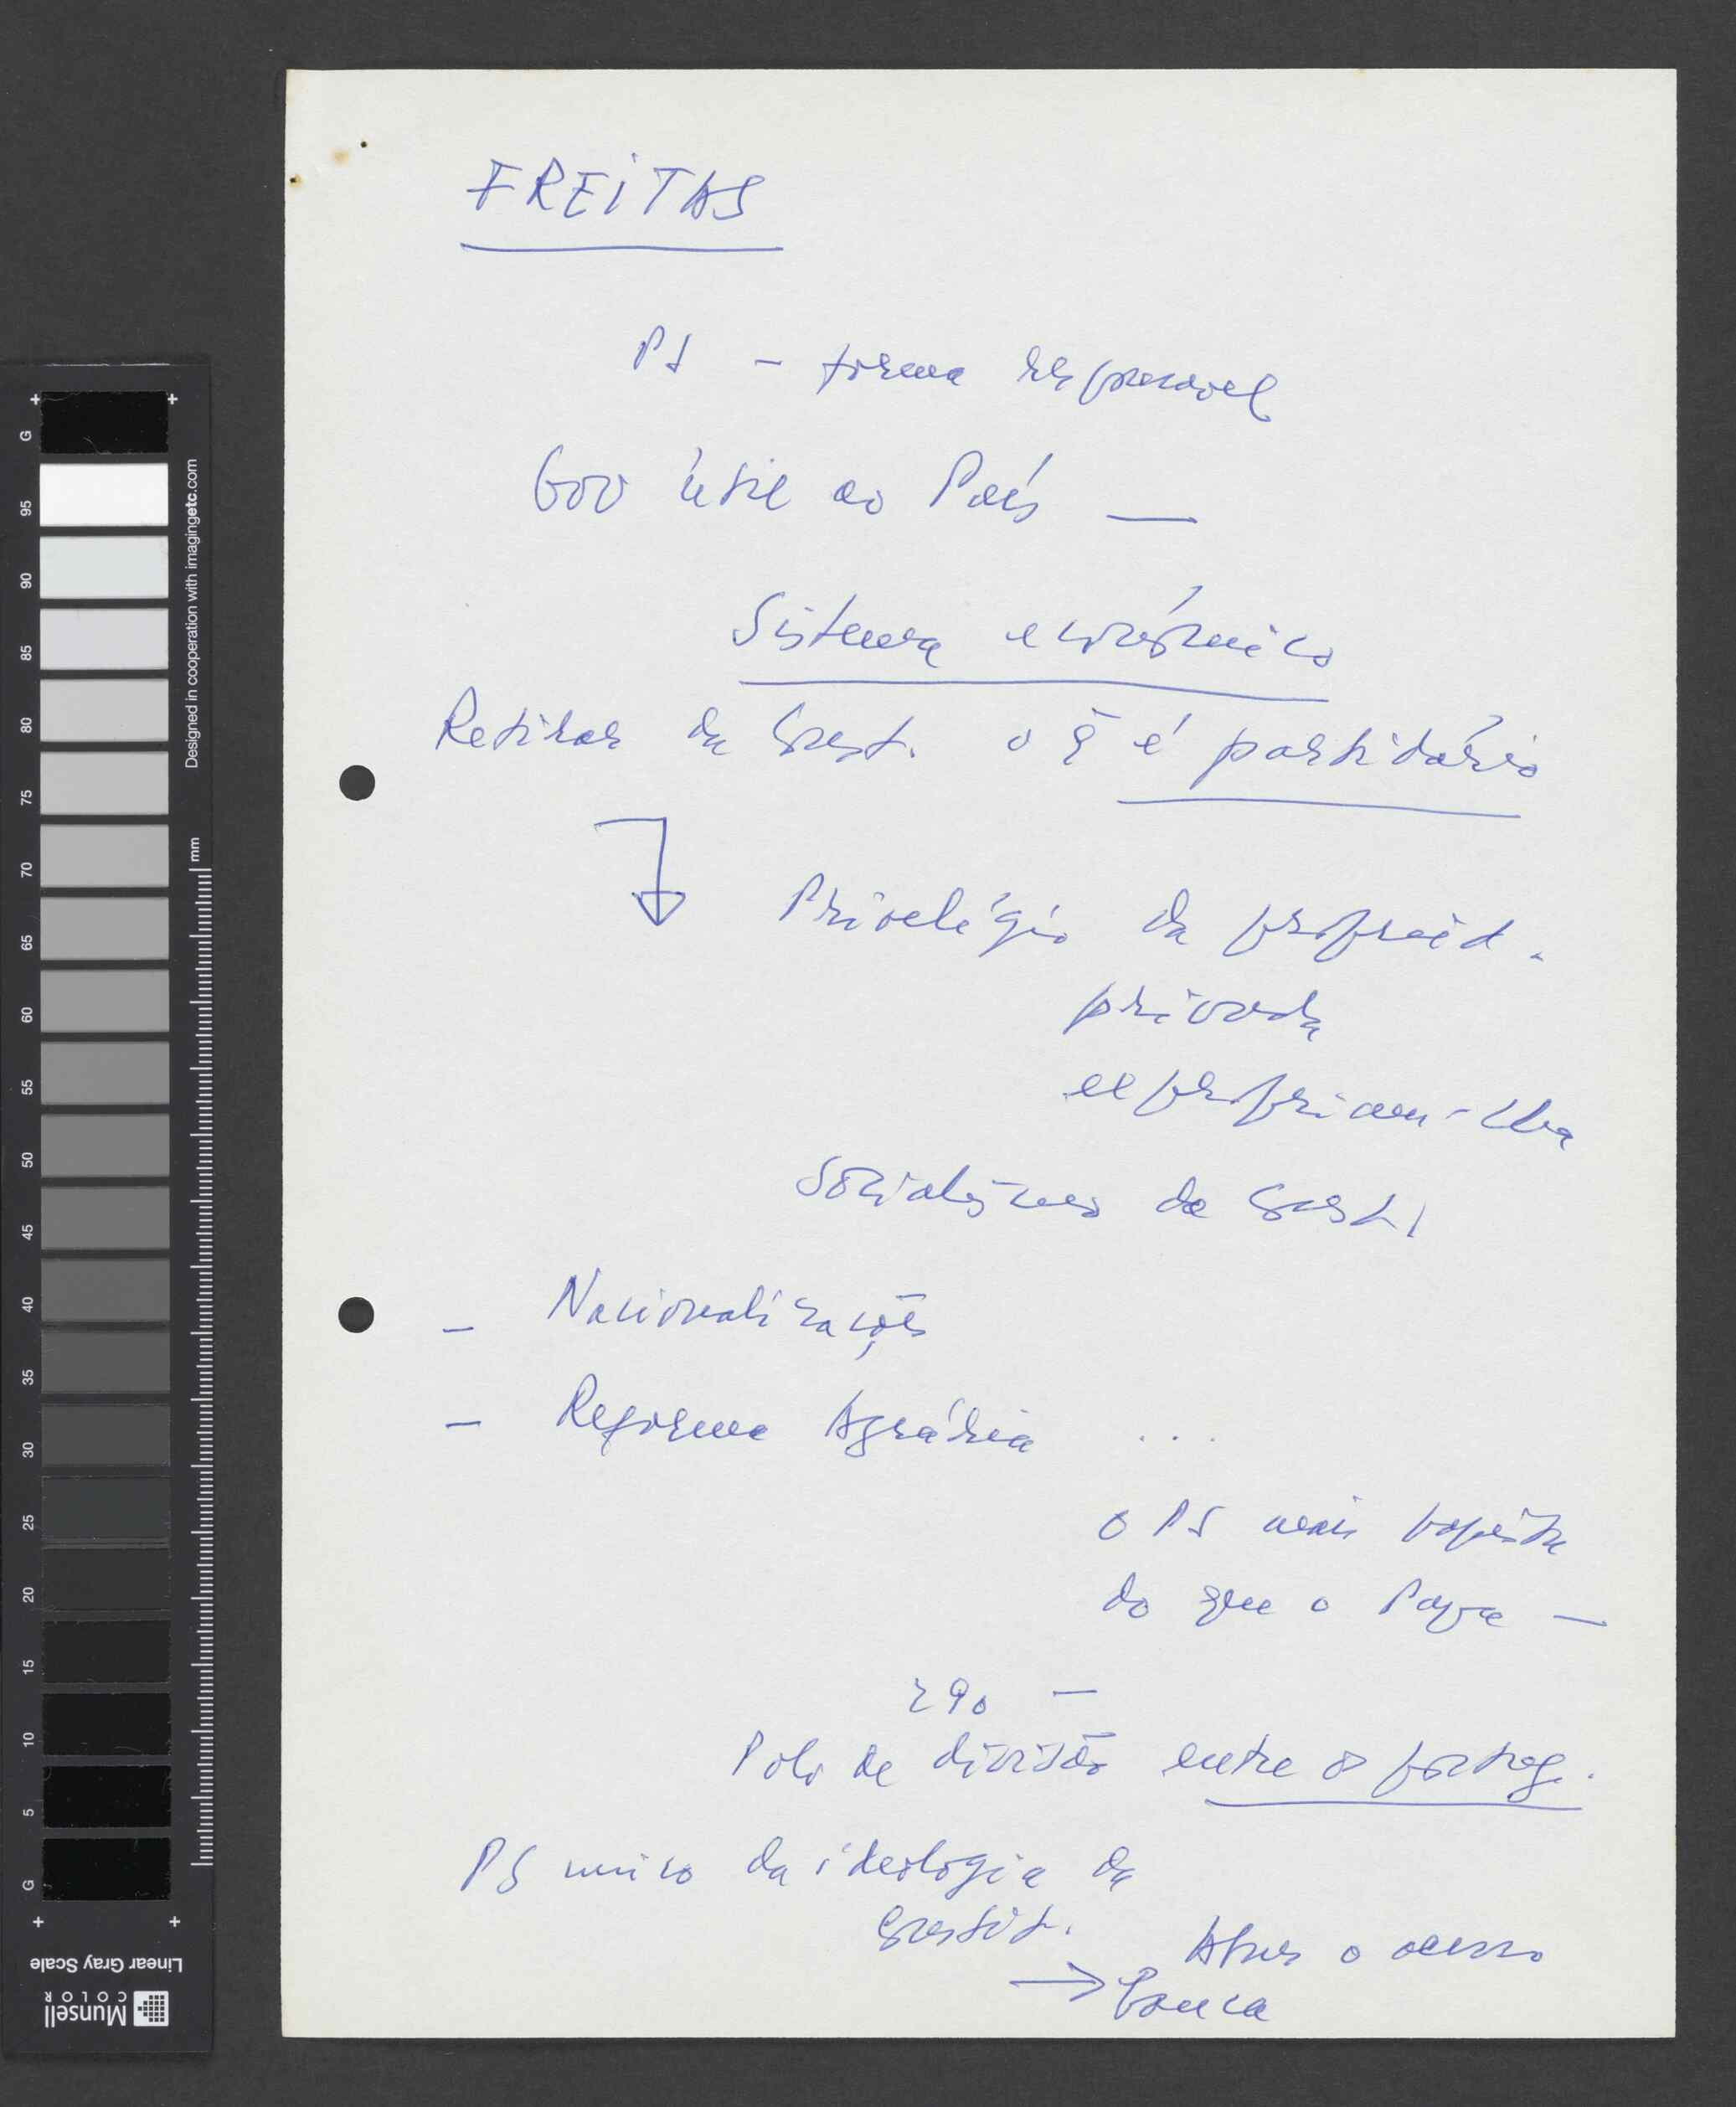 FREITAS
PS - forma responsável
Gov útil ao País —
Sistema económico
Retirar da Const. o q̃ é partidário
Privelégio da propried.
privada
expropriam-lha
Socialismo da Const.
- Nacionalizações
- Reforma Agrária ...
o PS mais papista
do que o Papa —
290 —
Polo de divisão entre os portug.
PS único da ideologia da
Constit.
Abrir o acesso
→ Banca
G
95
90
85
80
75
70
65
60
55
50
45
40
35
30
25
20
15
10
5
G
mm
Designed in cooperation with imagingetc.com
Linear Gray Scale
Munsell
COLOR